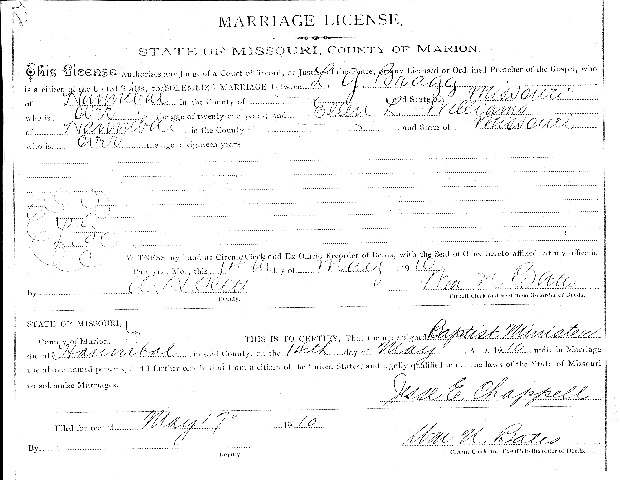 MARRIAGE LICENSE,
STATE OF MISSOURI, COUNTY OF MARION.
This License Authorizes any Judge of a Court of Record, or Justice of the Peace, or any Licensed or Ordained Preacher of the Gospel, who
is a citizen of the United States, to SOLEMNIZE MARRIAGE between L Y Bragg
of Hannibal in the County of and State of Missouri
who is over the age of twenty-one years; and Ellen L Williams
of Hannibal in the County and State of Missouri
who is over the age of eighteen years
WITNESS my hand as Circuit Clerk and Ex-Officio Recorder of Deeds, with the Seal of Office hereto affixed at my office in
Mo., this day of May 1910
by Deputy. Wm N. Bates
Circuit Clerk and Ex-Officio Recorder of Deeds.
STATE OF MISSOURI,
County of Marion. THIS IS TO CERTIFY, That the undersigned Baptist Minister
did at Hannibal in said County, on the 14th day of May A. D. 1910 unite in Marriage
the above named persons, and I further certify that I am a citizen of the United States, and legally qualified under the laws of the State of Missouri
to solemnize Marriages.
E. Chappell
Filed for record May 17 1910
Wm N. Bates
By Deputy Circuit Clerk and Ex-Officio Recorder of Deeds.